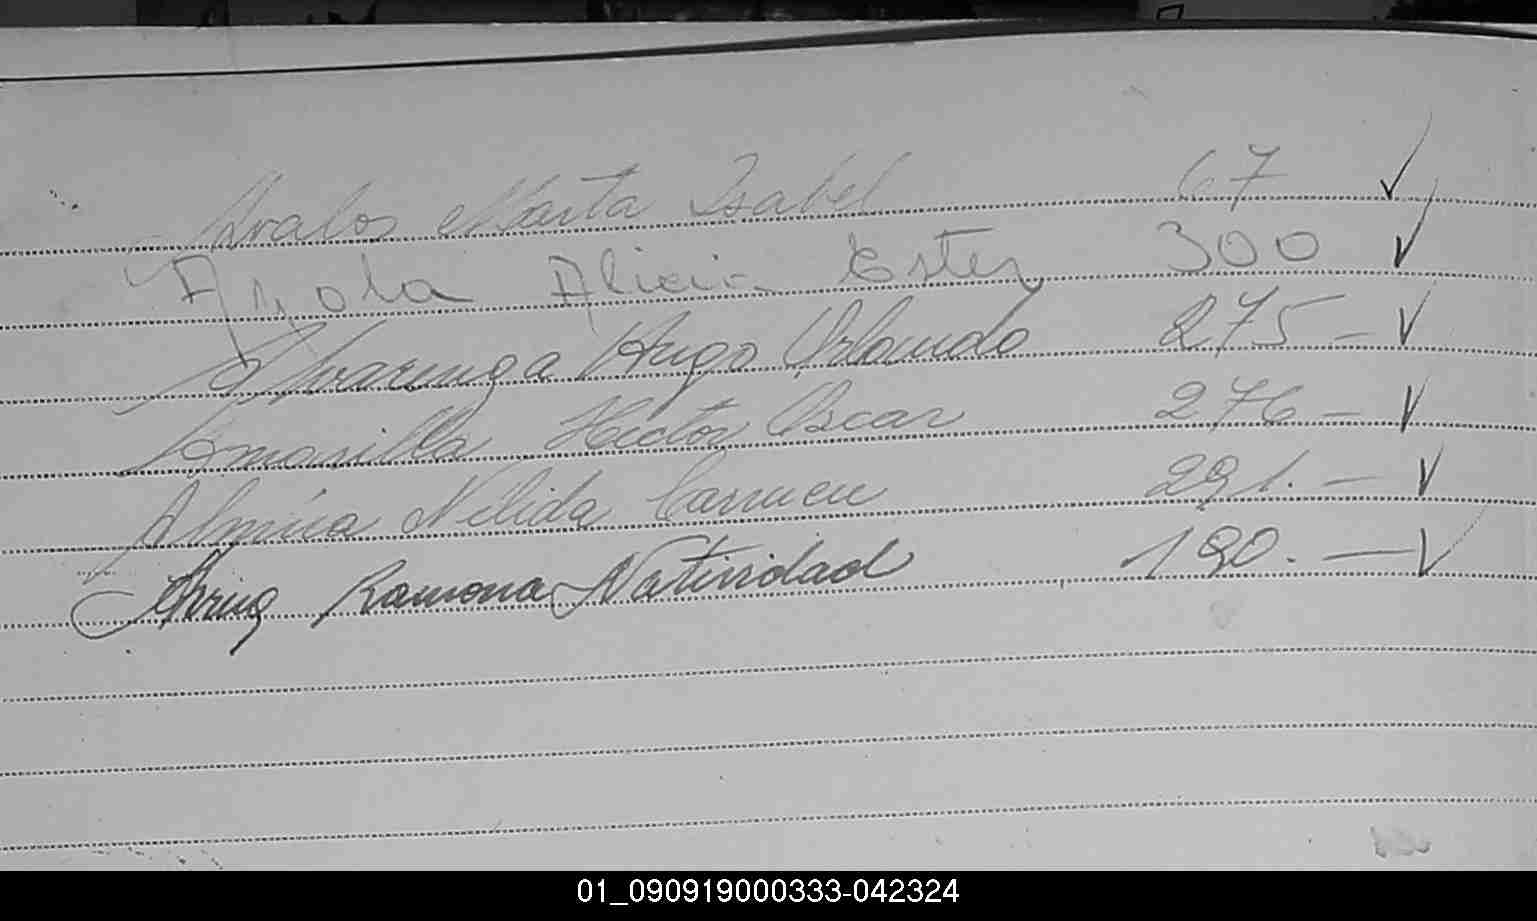 Avalos Marta Isabel 67 ✓
Azola Alicia Ester 300 ✓
Alvarenga Hugo Orlando 275 — ✓
Amarilla Hector Oscar 276 — ✓
Almira Nélida Carmen 291. — ✓
Ramona Natividad 190. — ✓
01_090919000333-042324